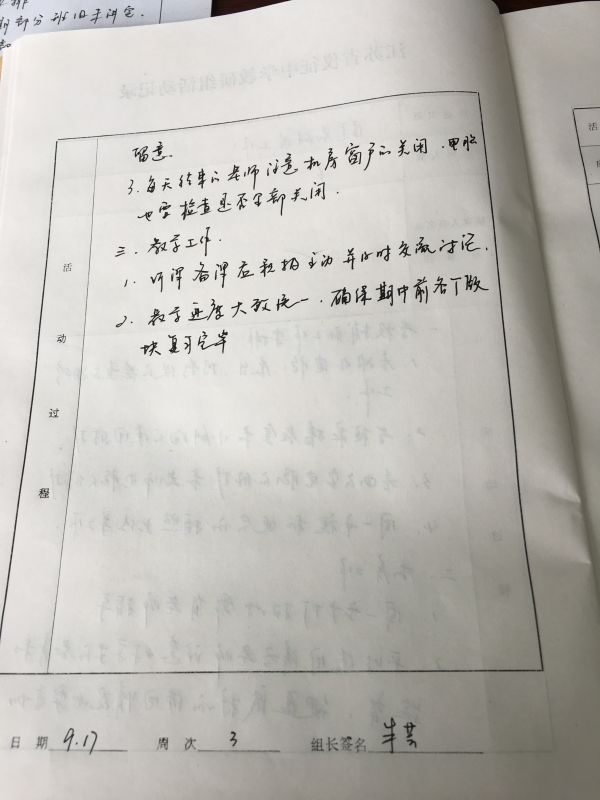 期部分班日手讲完.
留意.
3. 每天结束的老师注意机房窗户的关闭.电脑
也要检查是否全部关闭.
三. 教学工作.
1. 听课备课应积极主动并及时交流讨论.
2. 教学进度大致统一.确保期中前各个版
块复习完毕
活
动
过
程
日 期 9.17 周 次 3 组长签名
活